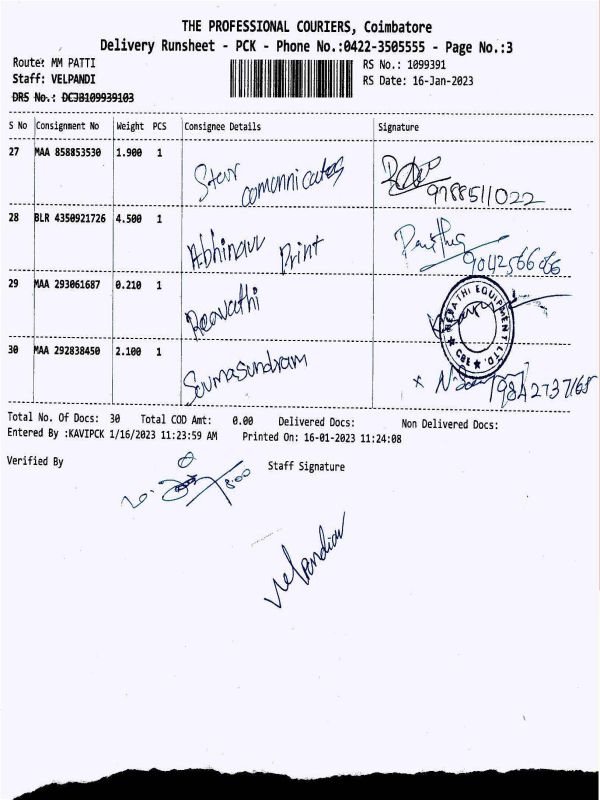 THE PROFESSIONAL COURIERS, Coimbatore
Delivery Runsheet - PCK - Phone No.:0422-3505555 - Page No.:3
Route: MM PATTI
RS No.: 1099391
Staff: VELPANDI
RS Date: 16-Jan-2023
DRS No.: DCJB109939103
S No Consignment No Weight PCS Consignee Details Signature
27 MAA 858853530 1.900 1
Starr comunnicates 9788511022
28 BLR 4350921726 4.500 1
Abhinavv Print 9042566066
29 MAA 293061687 0.210 1
Reavathi REVATHI EQUIPMENT LTD. CBE
30 MAA 292838450 2.100 1
Soumasundram 9842737168
Total No. Of Docs: 30 Total COD Amt: 0.00 Delivered Docs: Non Delivered Docs:
Entered By :KAVIPCK 1/16/2023 11:23:59 AM Printed On: 16-01-2023 11:24:08
Verified By Staff Signature
8:00
velpandian